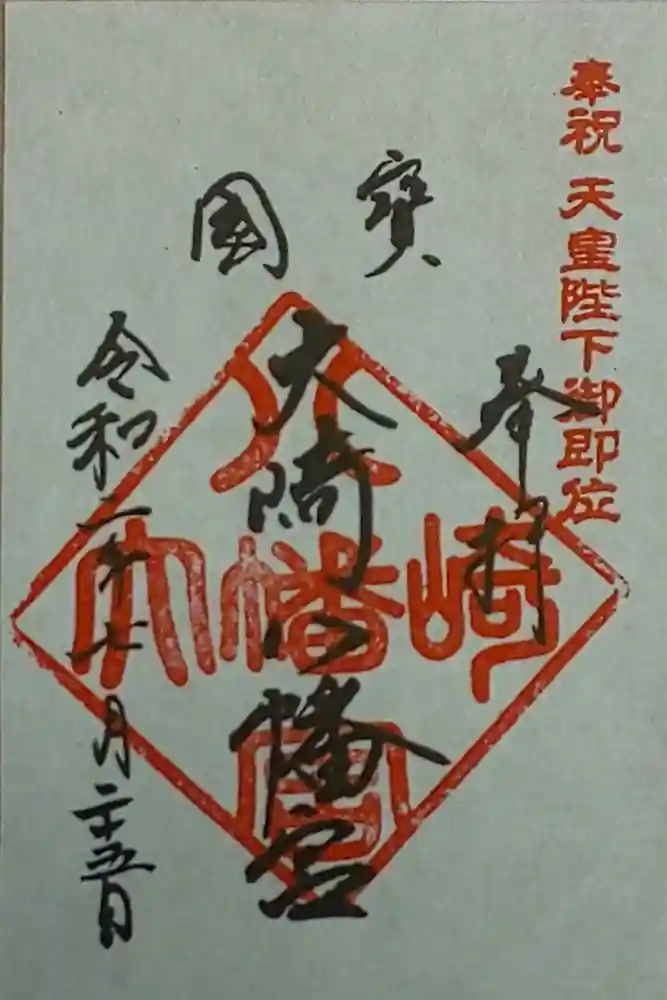 奉祝 天皇陛下御即位
奉拝
國寳
大崎八幡宮
八
大幡崎
宮
令和二年七月二十五日